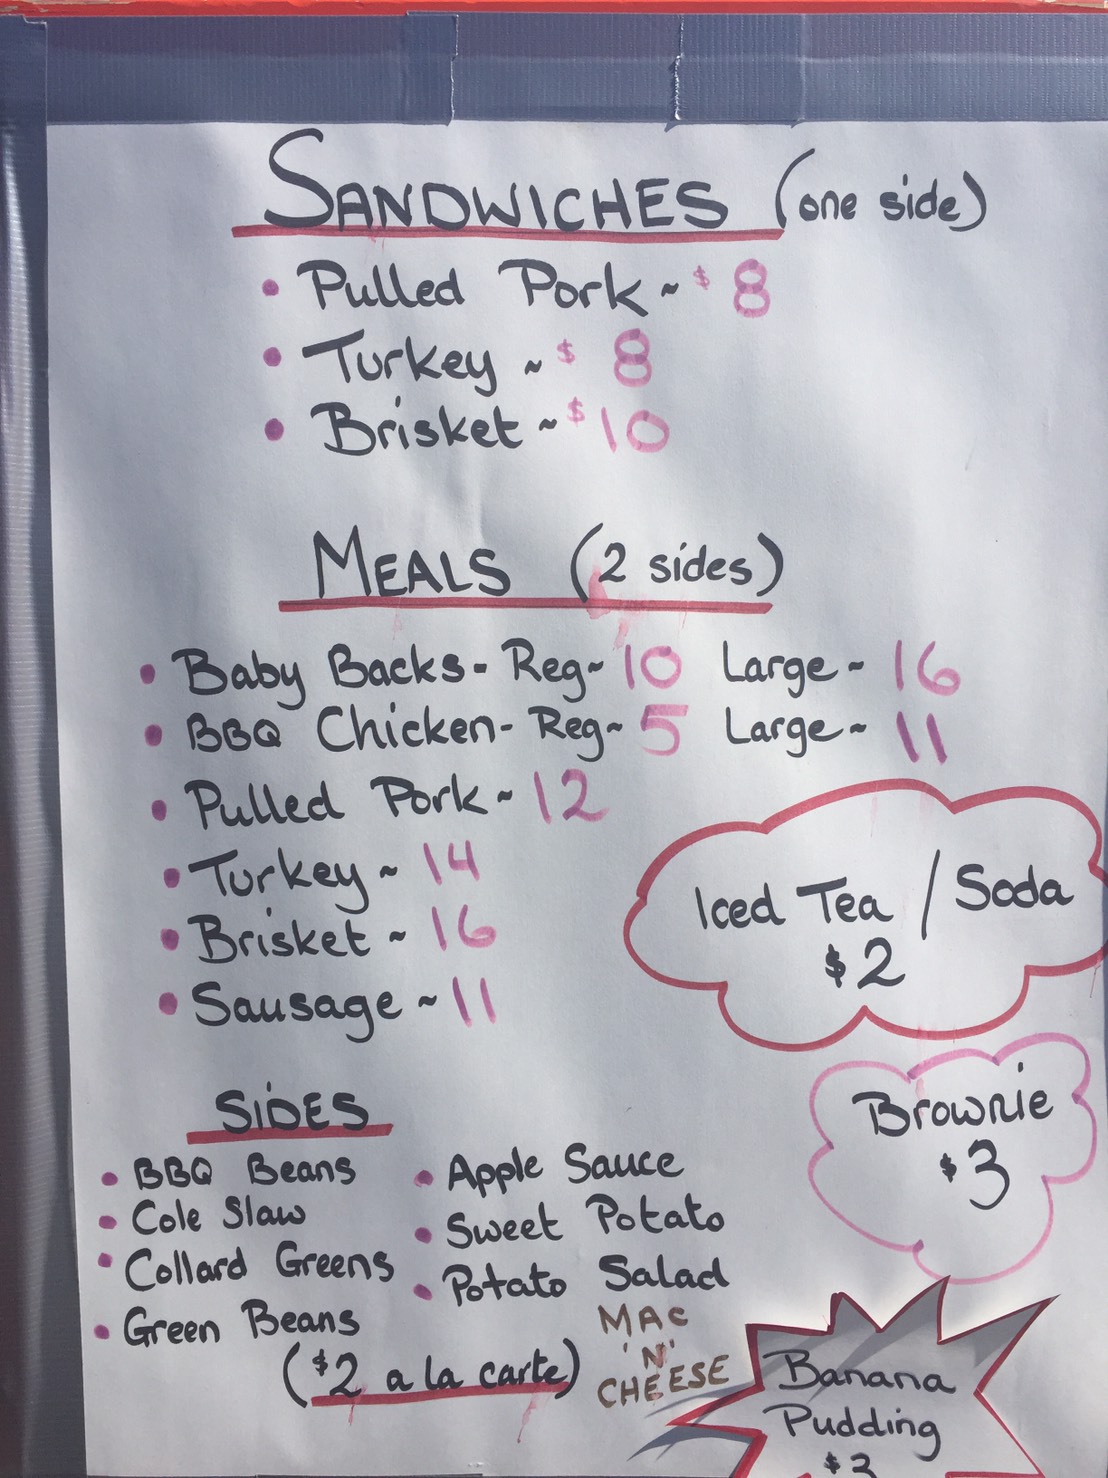 SANDWICHES (one side)
• Pulled Pork ~ $8
• Turkey ~ $8
• Brisket ~ $10
MEALS (2 sides)
• Baby Backs - Reg ~ 10 Large ~ 16
• BBQ Chicken - Reg ~ 5 Large ~ 11
• Pulled Pork ~ 12
• Turkey ~ 14
• Brisket ~ 16
• Sausage ~ 11
Iced Tea / Soda
$2
Brownie
$3
SIDES
• BBQ Beans
• Cole Slaw
• Collard Greens
• Green Beans
• Apple Sauce
• Sweet Potato
• Potato Salad
MAC
'N'
CHEESE
($2 a la carte)
Banana
Pudding
$3